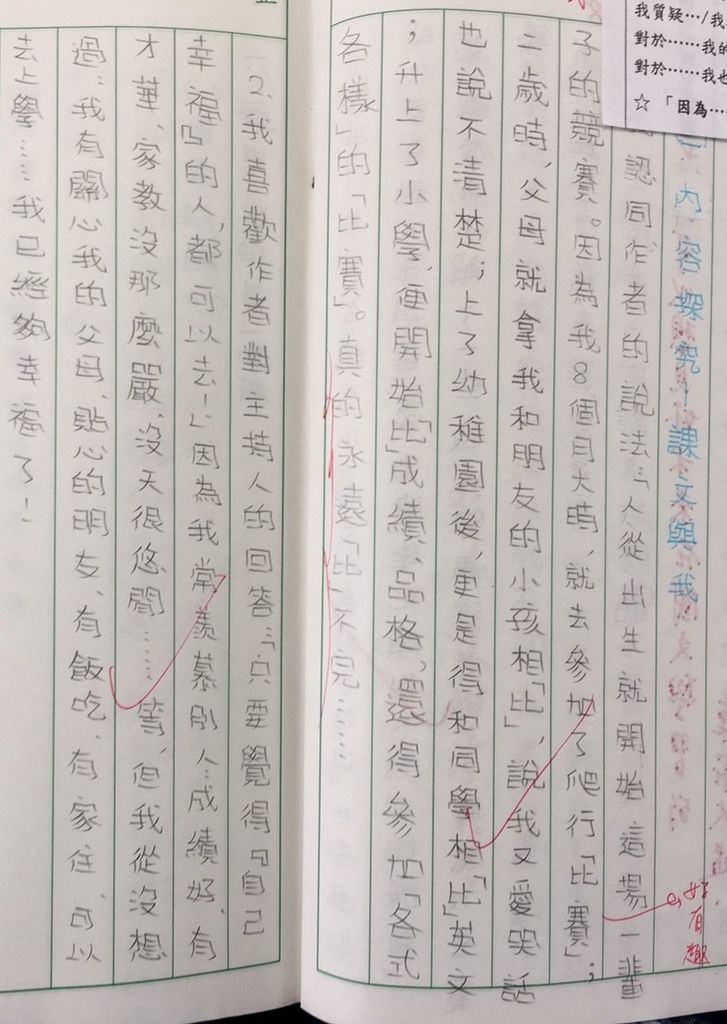 我質疑…/我
對於……我的
對於……我也
☆「因為…
內容探究—課文與我
認同作者的說法:「人從出生就開始這場一輩
子的競賽。因為我8個月大時,就去參加了爬行「比賽」;
好有趣
二歲時,父母就拿我和朋友的小孩相「比」,說我又愛哭話
也說不清楚;上了幼稚園後,更是得和同學相「比」英文
;升上了小學,便開始「比」成績、品格,還得參加「各式
各樣」的「比賽」。真的永遠「比」不完……
2.我喜歡作者對主持人的回答:「只要覺得『自己
幸福』的人,都可以去!」因為我常羨慕別人:成績好、有
才華、家教沒那麼嚴、沒天很悠閒……等,但我從沒想
過:我有關心我的父母、貼心的朋友、有飯吃、有家住、可以
去上學……我已經夠幸福了!